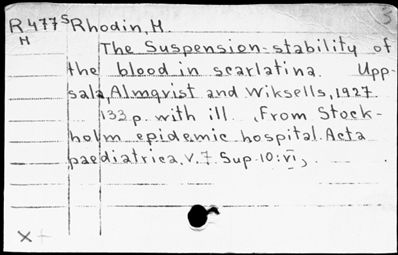 R477 S Rhodin, H.
H
The Suspension-stability of
the blood in scarlatina. Upp-
sala, Almqvist and Wiksells, 1927.
133 p. with ill. (From Stock-
holm epidemic hospital. Acta
paediatrica. v. 7. Sup. 10: VI)
X +